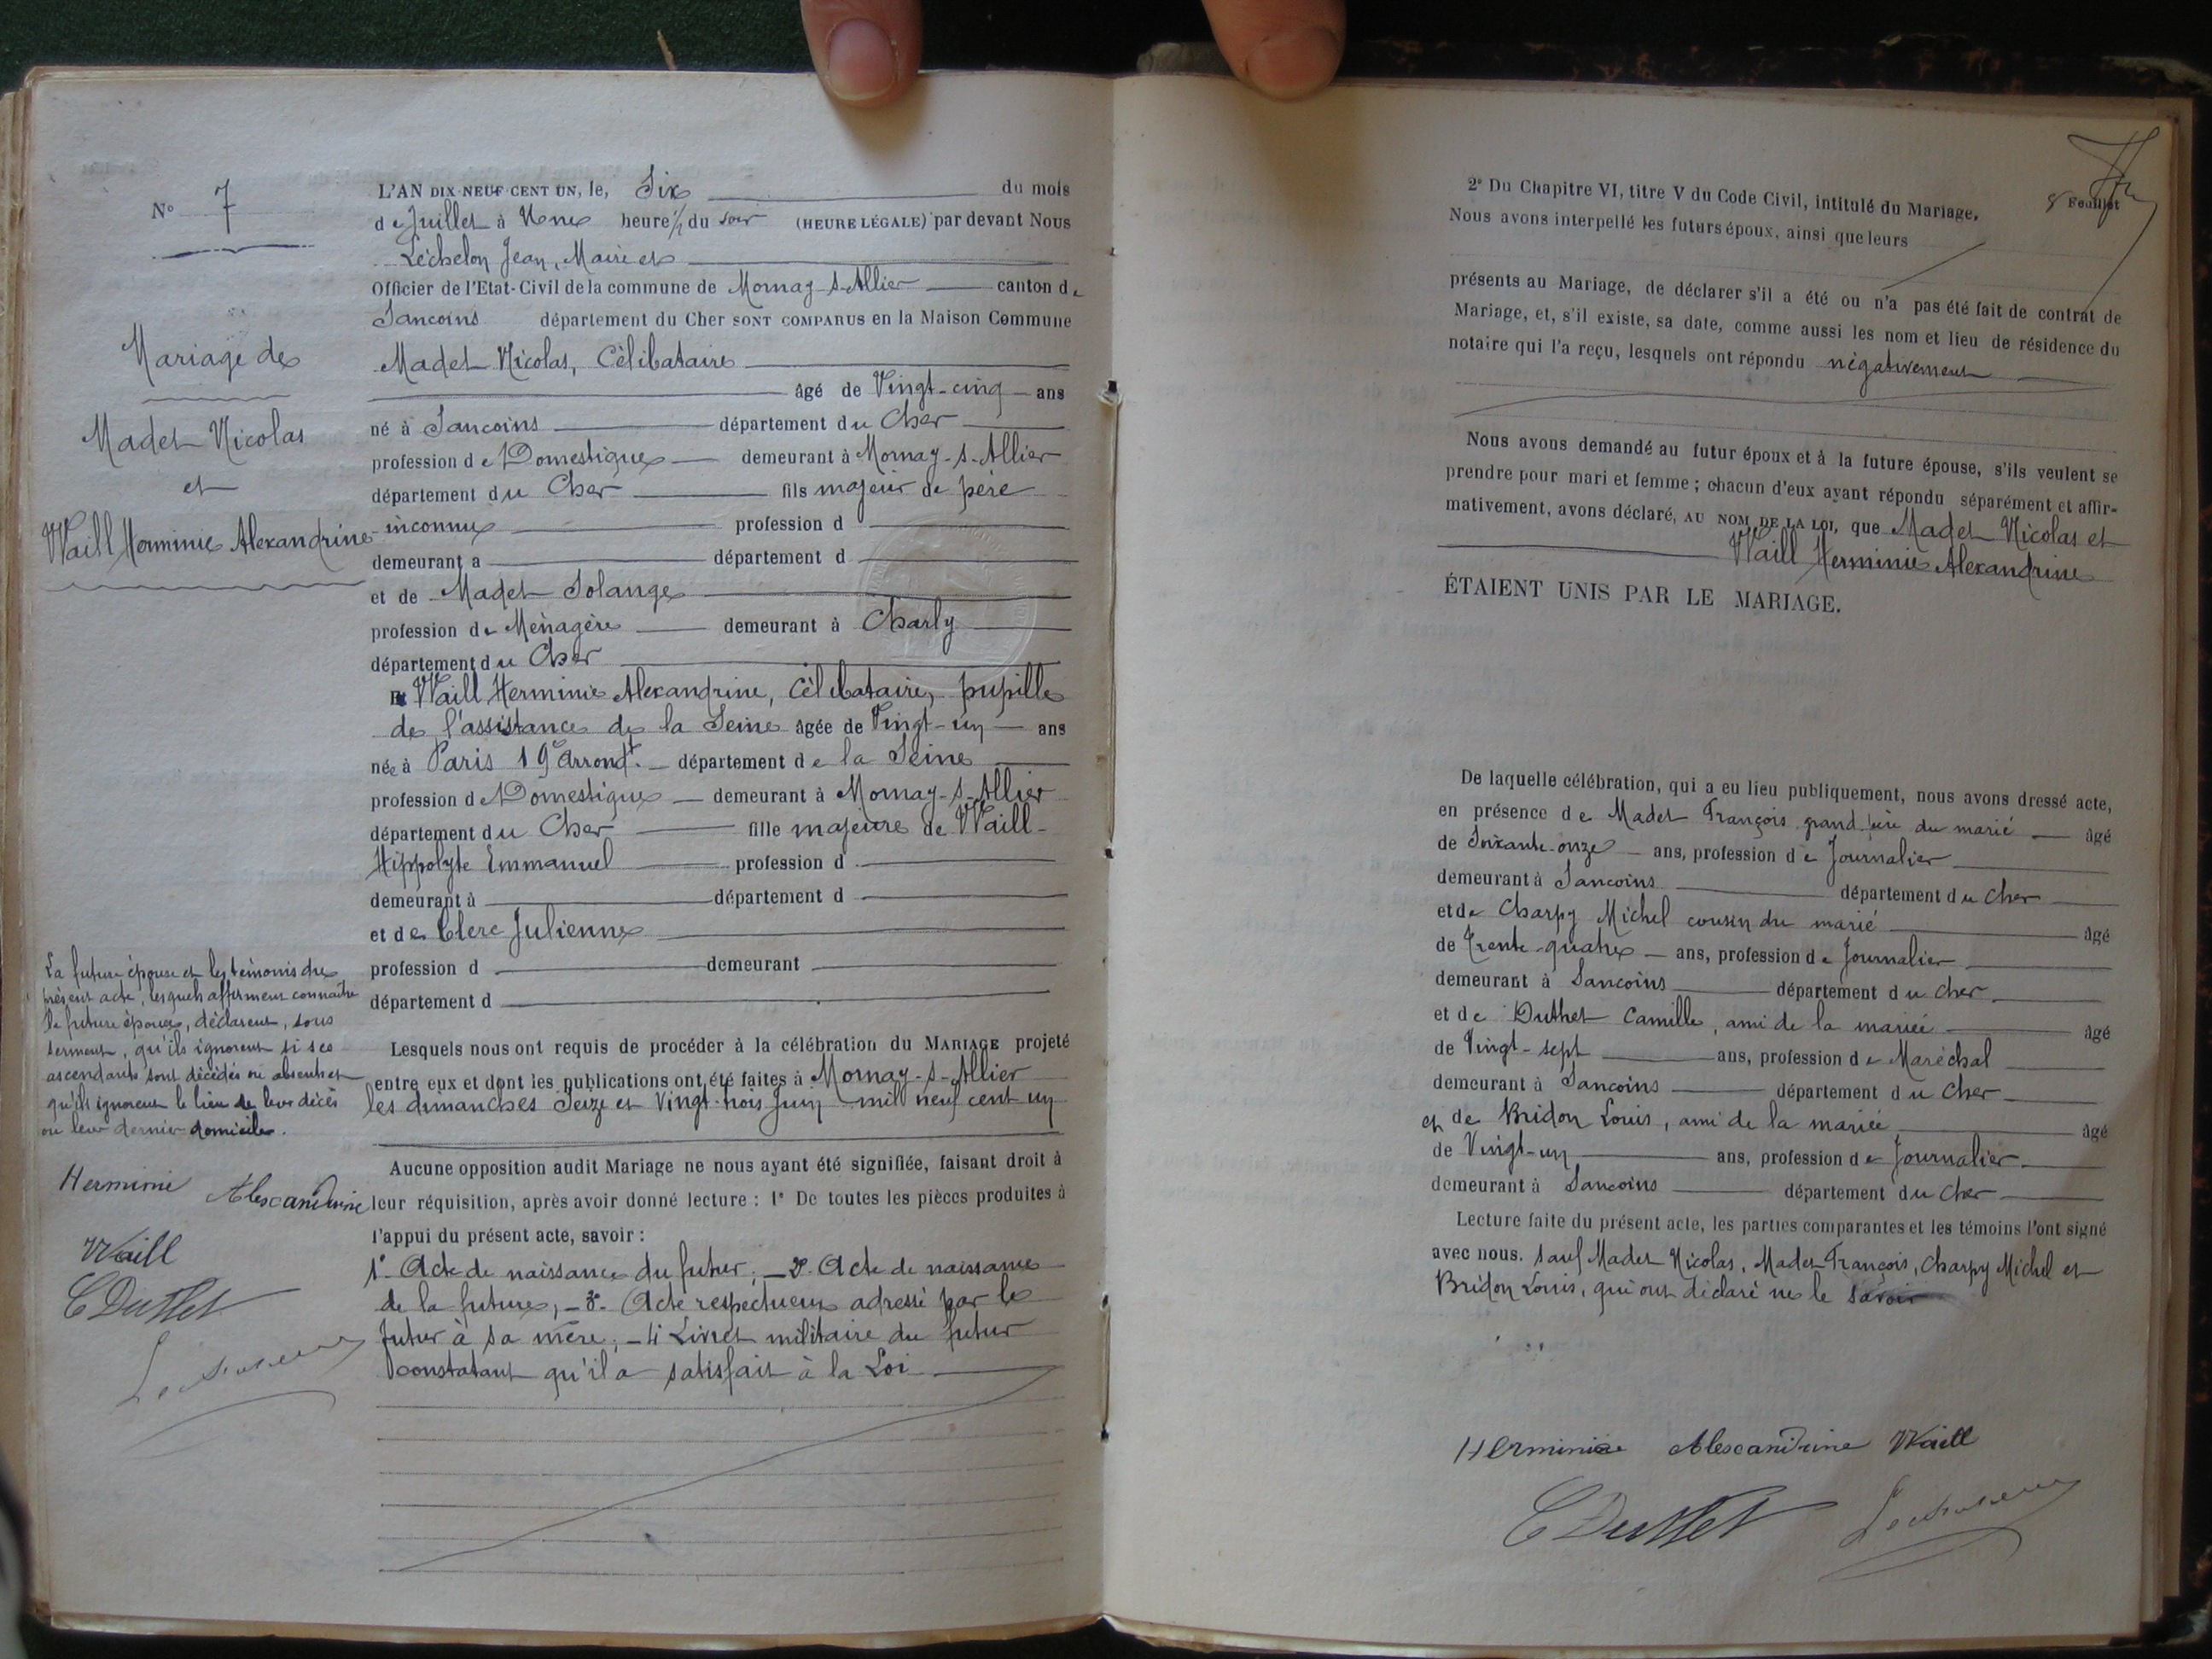 N° 7
Mariage de
Madet Nicolas
et
Waill Herminie Alexandrine
L'AN DIX-NEUF CENT UN, le, Six du mois
de Juillet à heure ½ du soir (HEURE LÉGALE) par devant Nous
Léchelon Jean, Maire et
Officier de l'Etat-Civil de la commune de Mornay-s-Allier canton de
Sancoins département du Cher SONT COMPARUS en la Maison Commune
Madet Nicolas, Célibataire
âgé de Vingt-cinq ans
né à Sancoins département du Cher
profession de Domestique demeurant à Mornay-s-Allier
département du Cher fils majeur de père
inconnu profession d
demeurant a département d
et de Madet Solange
profession de Ménagère demeurant à Charly
département du Cher
Et Waill Herminie Alexandrine, Célibataire, pupille
de l'assistance de la Seine âgée de Vingt-un ans
née à Paris 19e Arrondt. département de la Seine
profession de Domestique demeurant à Mornay-s-Allier
département du Cher fille majeure de Waill
Hippolyte Emmanuel profession d
demeurant à département d
et de Clerc Julienne
profession d demeurant
département d
Lesquels nous ont requis de procéder à la célébration du MARIAGE projeté
entre eux et dont les publications ont été faites à Mornay-s-Allier
les dimanches Seize et Vingt-trois Juin mil neuf cent un
Aucune opposition audit Mariage ne nous ayant été signifiée, faisant droit à
leur réquisition, après avoir donné lecture : 1° De toutes les pièces produites à
l'appui du présent acte, savoir :
1°- Acte de naissance du futur; - 2°- Acte de naissance
de la future, - 3°- Acte respectueux adressé par le
futur à sa mère; - 4° Livret militaire du futur
constatant qu'il a satisfait à la Loi
La future épouse et les témoins du
présent acte, lesquels affirment connaître
la future épouse, déclarent, sous
serment, qu'ils ignorent si ses
ascendants sont décédés ou absents et
qu'ils ignorent le lieu de leur décès
ou leur dernier domicile.
Herminie Alexandrine
Waill
C Duthet
8 Feuillet
2° Du Chapitre VI, titre V du Code Civil, intitulé du Mariage.
Nous avons interpellé les futurs époux, ainsi que leurs
présents au Mariage, de déclarer s'il a été ou n'a pas été fait de contrat de
Mariage, et, s'il existe, sa date, comme aussi les nom et lieu de résidence du
notaire qui l'a reçu, lesquels ont répondu négativement
Nous avons demandé au futur époux et à la future épouse, s'ils veulent se
prendre pour mari et femme ; chacun d'eux ayant répondu séparément et affir-
mativement, avons déclaré, AU NOM DE LA LOI, que Madet Nicolas et
Waill Herminie Alexandrine
ÉTAIENT UNIS PAR LE MARIAGE.
De laquelle célébration, qui a eu lieu publiquement, nous avons dressé acte,
en présence de Madet François grand père du marié âgé
de Soixante-onze ans, profession de Journalier
demeurant à Sancoins département du Cher
et de Charpy Michel cousin du marié âgé
de Trente-quatre ans, profession de Journalier
demeurant à Sancoins département du Cher
et de Duthet Camille, ami de la mariée âgé
de Vingt-sept ans, profession de Maréchal
demeurant à Sancoins département du Cher
et de Bridon Louis, ami de la mariée âgé
de Vingt-un ans, profession de Journalier
demeurant à Sancoins département du Cher
Lecture faite du présent acte, les parties comparantes et les témoins l'ont signé
avec nous. sauf Madet Nicolas, Madet François, Charpy Michel et
Bridon Louis, qui ont déclaré ne le savoir
Herminie Alexandrine Waill
C Duthet